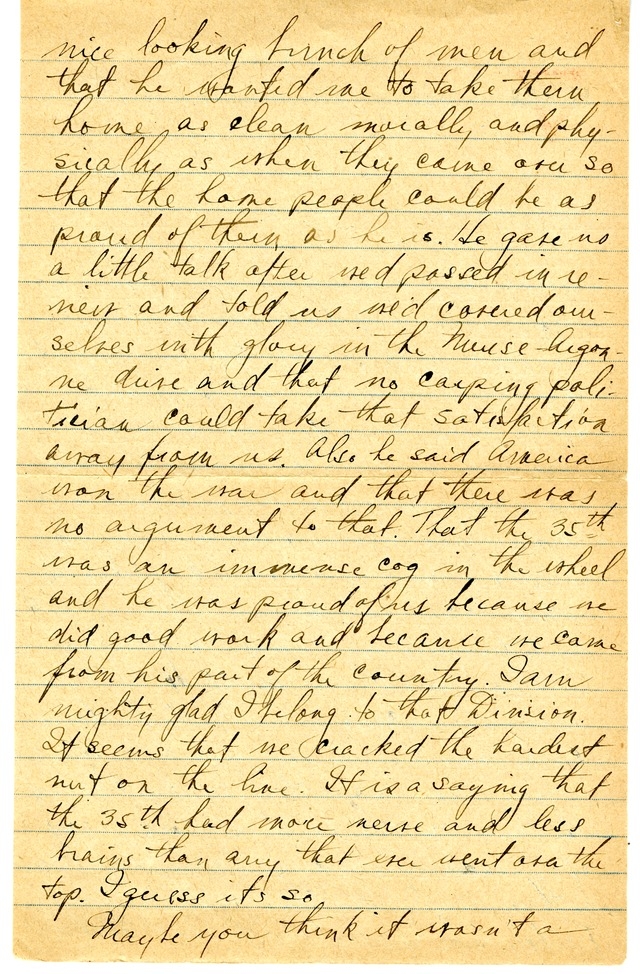 nice looking bunch of men and
that he wanted me to take them
home as clean morally and phy-
sically as when they came over so
that the home people could be as
proud of them as he is. He gave us
a little talk after we'd passed in re-
view and told us we'd covered our-
selves with glory in the Meuse-Argon-
ne drive and that no carping poli-
tician could take that satisfaction
away from us. Also he said America
won the war and that there was
no argument to that. That the 35th
was an immense cog in the wheel
and he was proud of us because we
did good work and because we came
from his part of the country. I am
mighty glad I belong to that Division.
It seems that we cracked the hardest
nut on the line. It is a saying that
the 35th had more nerve and less
brains than any that ever went over the
top. I guess its so
Maybe you think it wasn't a